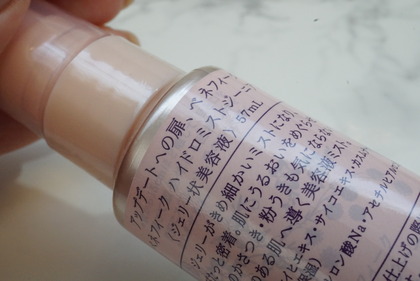 ップデートへの扉、ベネフィー
ネフィーク ハイドロミストジーニ
〈ジェリー状美容液〉 57mL
ジェリーがきめ細かいミストにな
密着。肌にうるおいをめぐ
かさつき・粉うきも気にならない
ある肌へ導く美容液ミスト
エキス・サイコエキス・カス
ロン酸Na アセチルヒアル
仕上げの